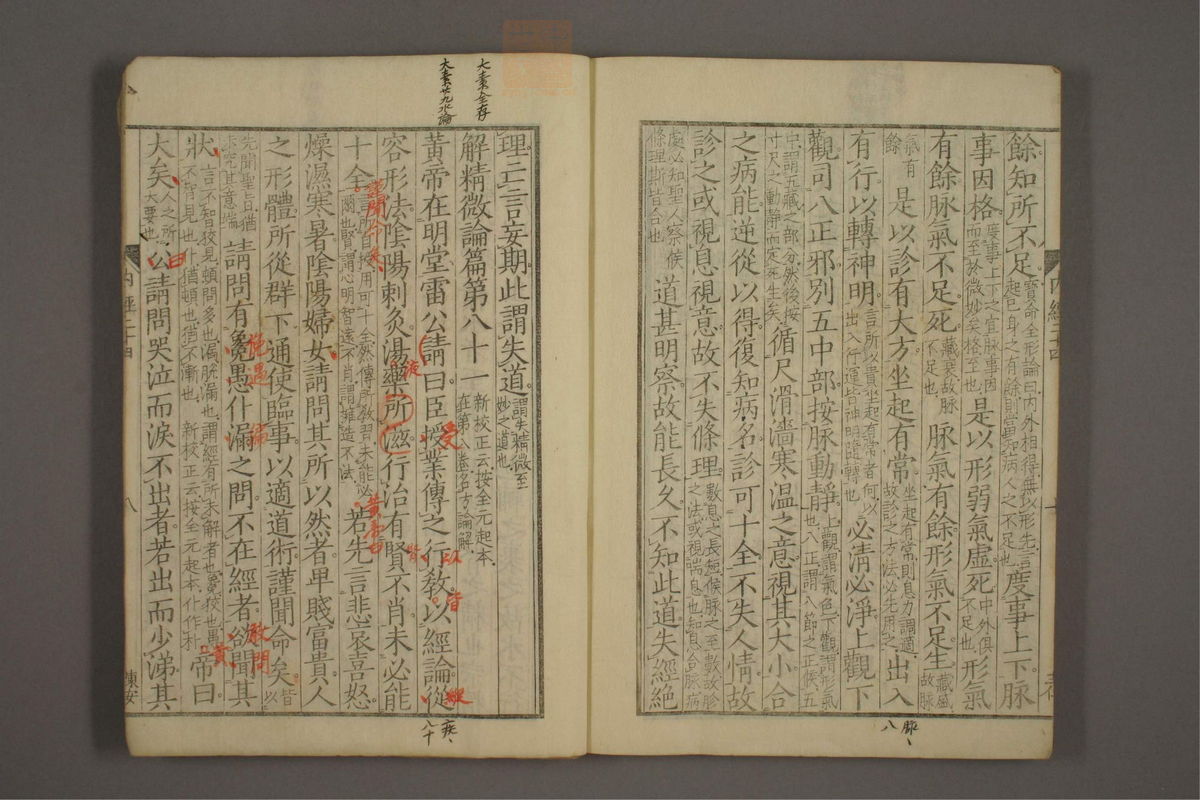 餘知所不足寶命全形論曰內外相得無以形先言起己身之有餘則當知病人之不足也度事上下脉
事因格度事上下之宜脉事因而至於微妙矣格至也是以形弱氣虛死中外俱不足也形氣
有餘脉氣不足死藏衰故脉不足也脉氣有餘形氣不足生藏盛故脉
氣有餘是以診有大方坐起有常坐起有常則息力調適故診之方法必先用之出入
有行以轉神明言所以貴坐起有常者何以出入行運皆神明隨轉也必清必淨上觀下
觀司八正邪別五中部按脉動靜上觀謂氣色下觀謂形氣也八正謂八節之正候五
中謂五藏之部分然後按寸尺之動靜而定死生矣循尺滑濇寒溫之意視其大小合
之病能逆從以得復知病名診可十全不失人情故
診之或視息視意故不失條理數息之長短候脉之至數故形之法或視喘息也知息合脉病
處必知聖人察候條理斯皆合也道甚明察故能長久不知此道失經絶
理亡言妄期此謂失道謂失精微至妙之道也
解精微論篇第八十一新校正云按全元起本在第八卷名方論解
黃帝在明堂雷公請曰臣授業傳之行教以經論從
容形法陰陽刺灸湯藥所滋行治有賢不肖未必能
十全言所自按用可十全然傳所敎習未能必爾也賢謂心明智遠不肖謂擁造不法若先言悲哀喜怒
燥濕寒暑陰陽婦女請問其所以然者卑賤富貴人
之形體所從群下通使臨事以適道術謹聞命矣皆以
先聞聖旨猶未究其意端請問有毚愚仆漏之問不在經者欲聞其
狀言不智狡見頓問多也漏脫漏也謂經有所未解者也毚狡也愚不智見也仆猶頓也猶不漸也新校正云按全元起本仆作朴帝曰
大矣人之所大要也公請問哭泣而淚不出者若出而少涕其
內經二十四
八
內經二十四
大素全存
大素廿九水論
受
以
皆
經
液
謹聞命矣
黃帝曰
敎問
黃
曰
疾
八十
脉
八